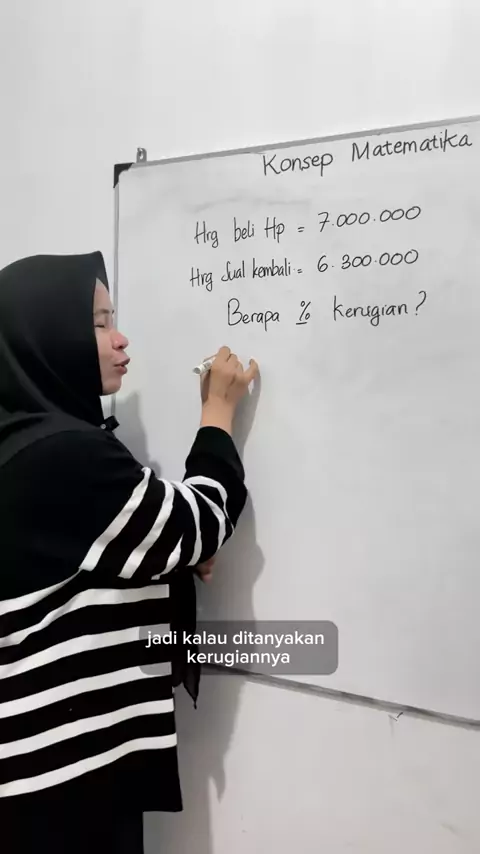 Konsep Matematika
Hrg beli Hp = 7.000.000
Hrg Jual kembali = 6.300.000
Berapa % kerugian?
jadi kalau ditanyakan
kerugiannya